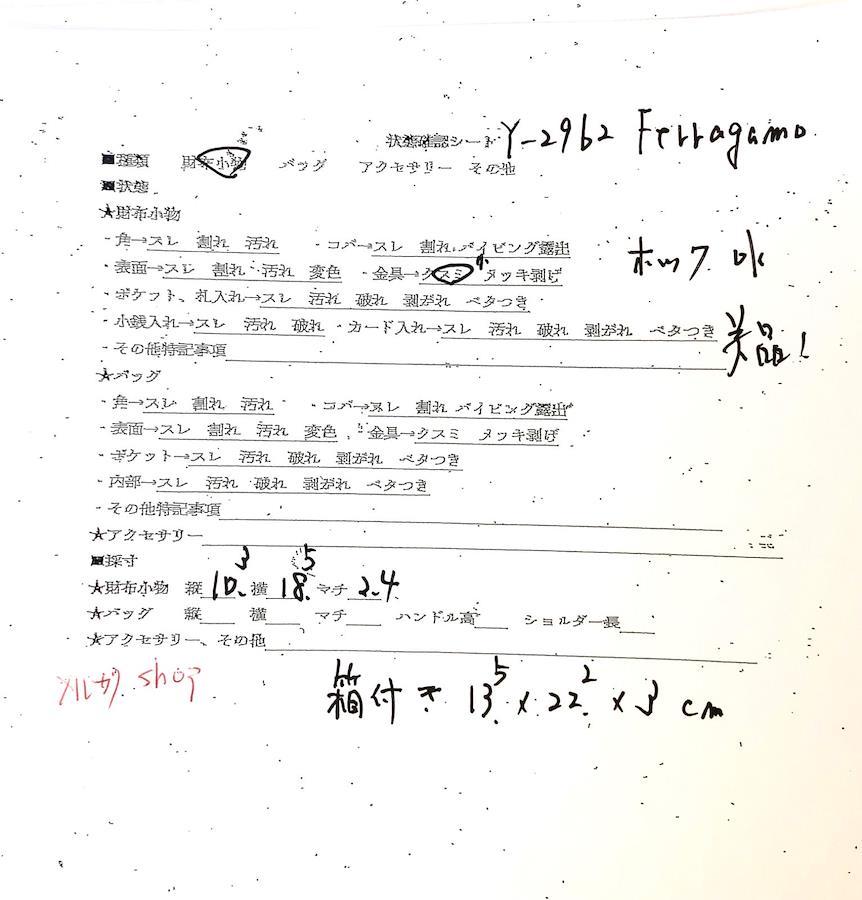 状態確認シート Y-2962 Ferragamo
■種類 財布小物 バッグ アクセサリー その他
■状態
★財布小物
・角→スレ 割れ 汚れ ・コバ→スレ 割れ パイピング露出
ホック ok
・表面→スレ 割れ 汚れ 変色 ・金具→クスミ 小 メッキ剥げ
・ポケット、札入れ→スレ 汚れ 破れ 剥がれ ベタつき
・小銭入れ→スレ 汚れ 破れ ・カード入れ→スレ 汚れ 破れ 剥がれ ベタつき
美品!
・その他特記事項
★バッグ
・角→スレ 割れ 汚れ ・コバ→スレ 割れ パイピング露出
・表面→スレ 割れ 汚れ 変色 ・金具→クスミ メッキ剥げ
・ポケット→スレ 汚れ 破れ 剥がれ ベタつき
・内部→スレ 汚れ 破れ 剥がれ ベタつき
・その他特記事項
★アクセサリー
■採寸
★財布小物 縦 10.3 横 18.5 マチ 2.4
★バッグ 縦 横 マチ ハンドル高 ショルダー長
★アクセサリー、その他
shop
箱付 13.5 x 22.2 x 3 cm